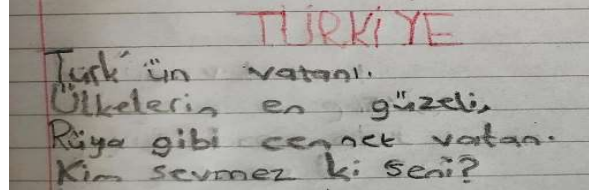 TÜRKİYE
Türk'ün vatanı.
Ülkelerin en güzeli,
Rüya gibi cennet vatan.
Kim sevmez ki seni?